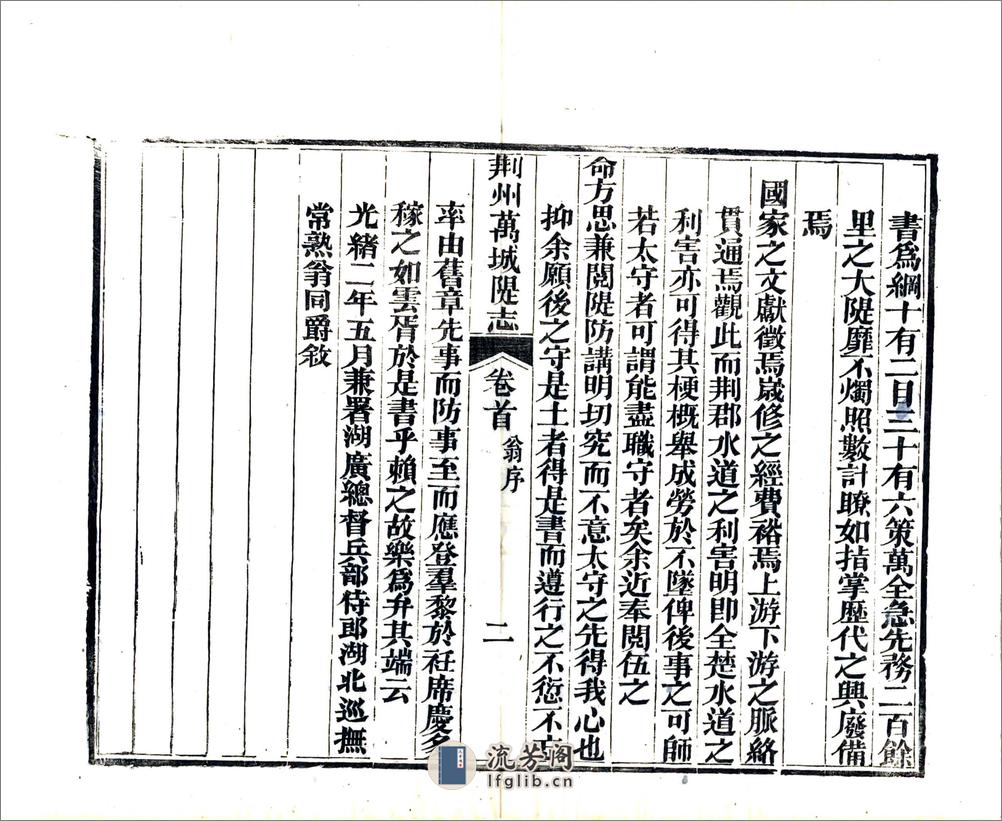 書爲綱十有二目三十有六策萬全急先務二百餘
里之大隄靡不燭照數計瞭如指掌歷代之興廢備
焉
國家之文獻徵焉歲修之經費裕焉上游下游之脈絡
貫通焉觀此而荆郡水道之利害明即全楚水道之
利害亦可得其梗概舉成勞於不墜俾後事之可師
若太守者可謂能盡職守者矣余近奉閱伍之
命方思兼閱隄防講明切究而不意太守之先得我心也
抑余願後之守是土者得是書而遵行之不愆不忘
荆州萬城隄志 卷首 翁序 二
率由舊章先事而防事至而應登羣黎於衽席慶多
稼之如雲胥於是書乎賴之故樂爲弁其端云
光緒二年五月兼署湖廣總督兵部侍郎湖北巡撫
常熟翁同爵敘
流芳阁
lfglib.cn